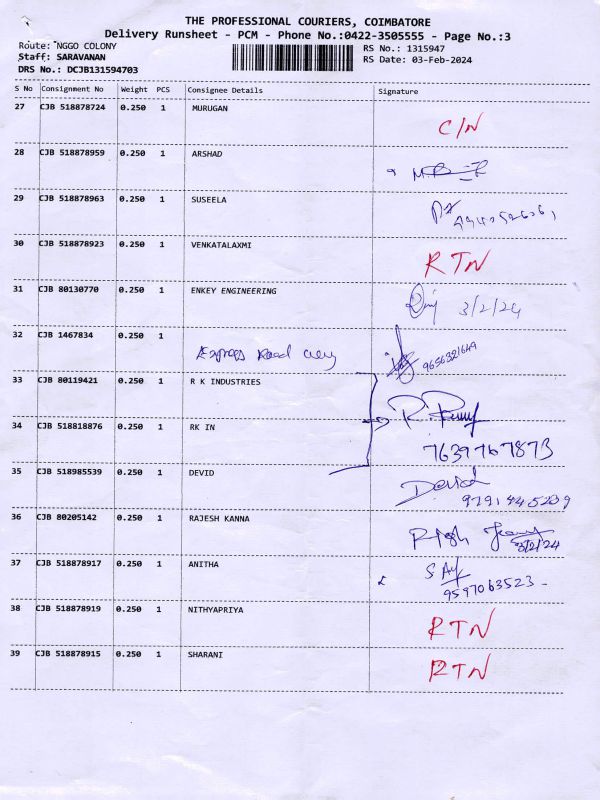 THE PROFESSIONAL COURIERS, COIMBATORE
Delivery Runsheet - PCM - Phone No.:0422-3505555 - Page No.:3
Route: NGGO COLONY RS No.: 1315947
Staff: SARAVANAN RS Date: 03-Feb-2024
DRS No.: DCJB131594703
S No Consignment No Weight PCS Consignee Details Signature
27 CJB 518878724 0.250 1 MURUGAN C/N
28 CJB 518878959 0.250 1 ARSHAD
29 CJB 518878963 0.250 1 SUSEELA
30 CJB 518878923 0.250 1 VENKATALAXMI RTN
31 CJB 80130770 0.250 1 ENKEY ENGINEERING 3/2/24
32 CJB 1467834 0.250 1 Express Road 9656321649
33 CJB 80119421 0.250 1 R K INDUSTRIES
34 CJB 518818876 0.250 1 RK IN 7639767873
35 CJB 518985539 0.250 1 DEVID David
9791445239
36 CJB 80205142 0.250 1 RAJESH KANNA
3/2/24
37 CJB 518878917 0.250 1 ANITHA
9597063523
38 CJB 518878919 0.250 1 NITHYAPRIYA RTN
39 CJB 518878915 0.250 1 SHARANI RTN